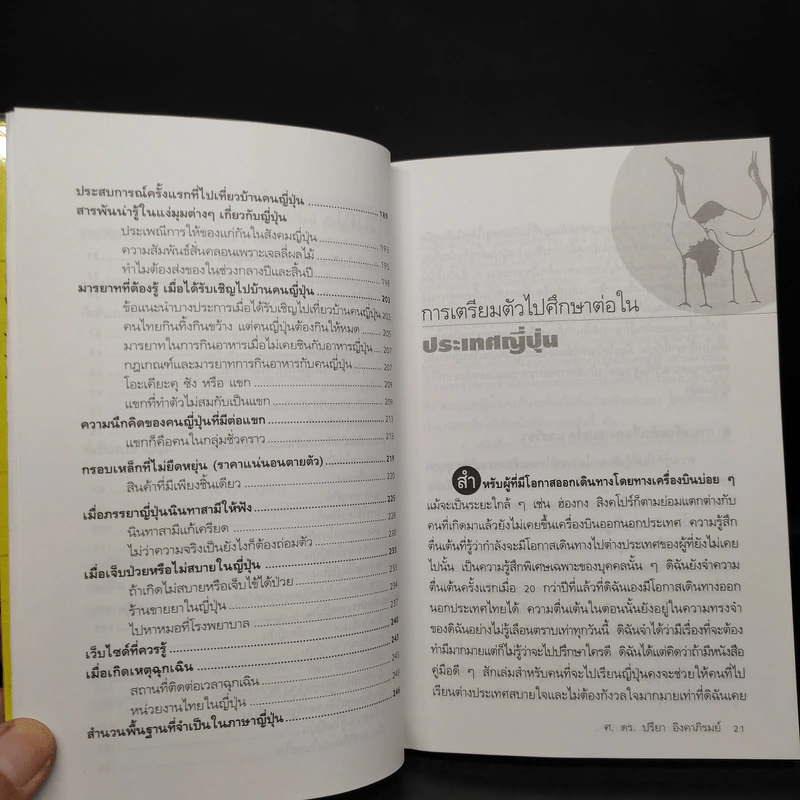 ประสบการณ์ครั้งแรกที่ไปเที่ยวบ้านคนญี่ปุ่น 189
สารพันน่ารู้ในแง่มุมต่างๆ เกี่ยวกับญี่ปุ่น
ประเพณีการให้ของแก่กันในสังคมญี่ปุ่น 193
ความสัมพันธ์สั่นคลอนเพราะเจลลี่ผลไม้ 195
ทำไมต้องส่งของในช่วงกลางปีและสิ้นปี 198
มารยาทที่ต้องรู้ เมื่อได้รับเชิญไปบ้านคนญี่ปุ่น 203
ข้อแนะนำบางประการเมื่อได้รับเชิญไปเที่ยวบ้านคนญี่ปุ่น 203
คนไทยกินทิ้งกินขว้าง แต่คนญี่ปุ่นต้องกินให้หมด 205
มารยาทในการกินอาหารเมื่อไม่เคยชินกับอาหารญี่ปุ่น 207
กฎเกณฑ์และมารยาทการกินอาหารกับคนญี่ปุ่น 207
โอะเคียะคุ ซัง หรือ แขก 209
แขกที่ทำตัวไม่สมกับเป็นแขก 209
ความนึกคิดของคนญี่ปุ่นที่มีต่อแขก 213
แขกก็คือคนในกลุ่มชั่วคราว 213
กรอบเหล็กที่ไม่ยืดหยุ่น (ราคาแน่นอนตายตัว) 219
สินค้าที่มีเพียงชิ้นเดียว 220
เมื่อภรรยาญี่ปุ่นนินทาสามีให้ฟัง 225
นินทาสามีแก้เครียด 228
ไม่ว่าความจริงเป็นยังไงก็ต้องถ่อมตัว 230
เมื่อเจ็บป่วยหรือไม่สบายในญี่ปุ่น 233
ถ้าเกิดไม่สบายหรือเจ็บไข้ได้ป่วย 233
ร้านขายยาในญี่ปุ่น 234
ไปหาหมอที่โรงพยาบาล 237
เว็บไซต์ที่ควรรู้ 240
เมื่อเกิดเหตุฉุกเฉิน 243
สถานที่ติดต่อเวลาฉุกเฉิน 243
หน่วยงานไทยในญี่ปุ่น 245
สำนวนพื้นฐานที่จำเป็นในภาษาญี่ปุ่น 246
การเตรียมตัวไปศึกษาต่อใน
ประเทศญี่ปุ่น
สำหรับผู้ที่มีโอกาสออกเดินทางโดยทางเครื่องบินบ่อย ๆ
แม้จะเป็นระยะใกล้ ๆ เช่น ฮ่องกง สิงคโปร์ก็ตามย่อมแตกต่างกับ
คนที่เกิดมาแล้วยังไม่เคยขึ้นเครื่องบินออกนอกประเทศ ความรู้สึก
ตื่นเต้นที่รู้ว่ากำลังจะมีโอกาสเดินทางไปต่างประเทศของผู้ที่ยังไม่เคย
ไปนั้น เป็นความรู้สึกพิเศษเฉพาะของบุคคลนั้น ๆ ดิฉันยังจำความ
ตื่นเต้นครั้งแรกเมื่อ 20 กว่าปีที่แล้วที่ดิฉันเองมีโอกาสเดินทางออก
นอกประเทศไทยได้ ความตื่นเต้นในตอนนั้นยังอยู่ในความทรงจำ
ของดิฉันอย่างไม่รู้เลือนตราบเท่าทุกวันนี้ ดิฉันจำได้ว่ามีเรื่องที่จะต้อง
ทำมีมากมายแต่ก็ไม่รู้ว่าจะไปปรึกษาใครดี ดิฉันได้แต่คิดว่าถ้ามีหนังสือ
คู่มือดี ๆ สักเล่มสำหรับคนที่จะไปเรียนญี่ปุ่นคงจะช่วยให้คนที่ไป
เรียนต่างประเทศสบายใจและไม่ต้องกังวลใจมากมายเท่าที่ดิฉันเคย
ศ. ดร. ปรียา อิงคาภิรมย์ 21